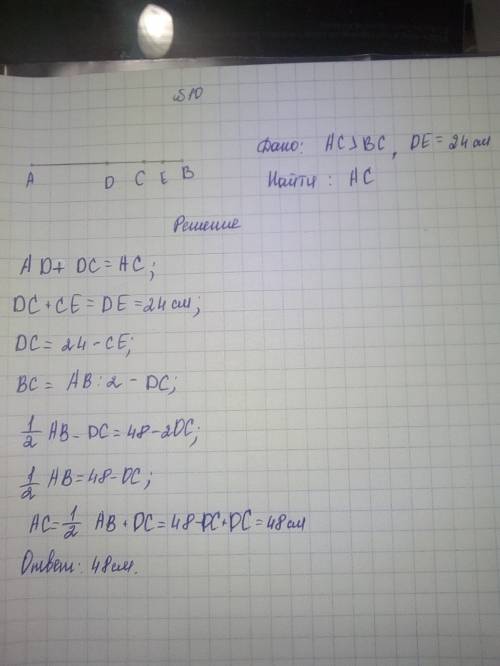 №10
Дано: AC>BC, DE=24 см
A D C E B
Найти: AC
Решение
AD+DC=AC;
DC+CE=DE=24 см;
DC=24-CE;
BC=AB:2-DC;
1/2 AB-DC=48-2DC;
1/2 AB=48-DC;
AC=1/2 AB+DC=48-DC+DC=48 см
Ответ: 48 см.